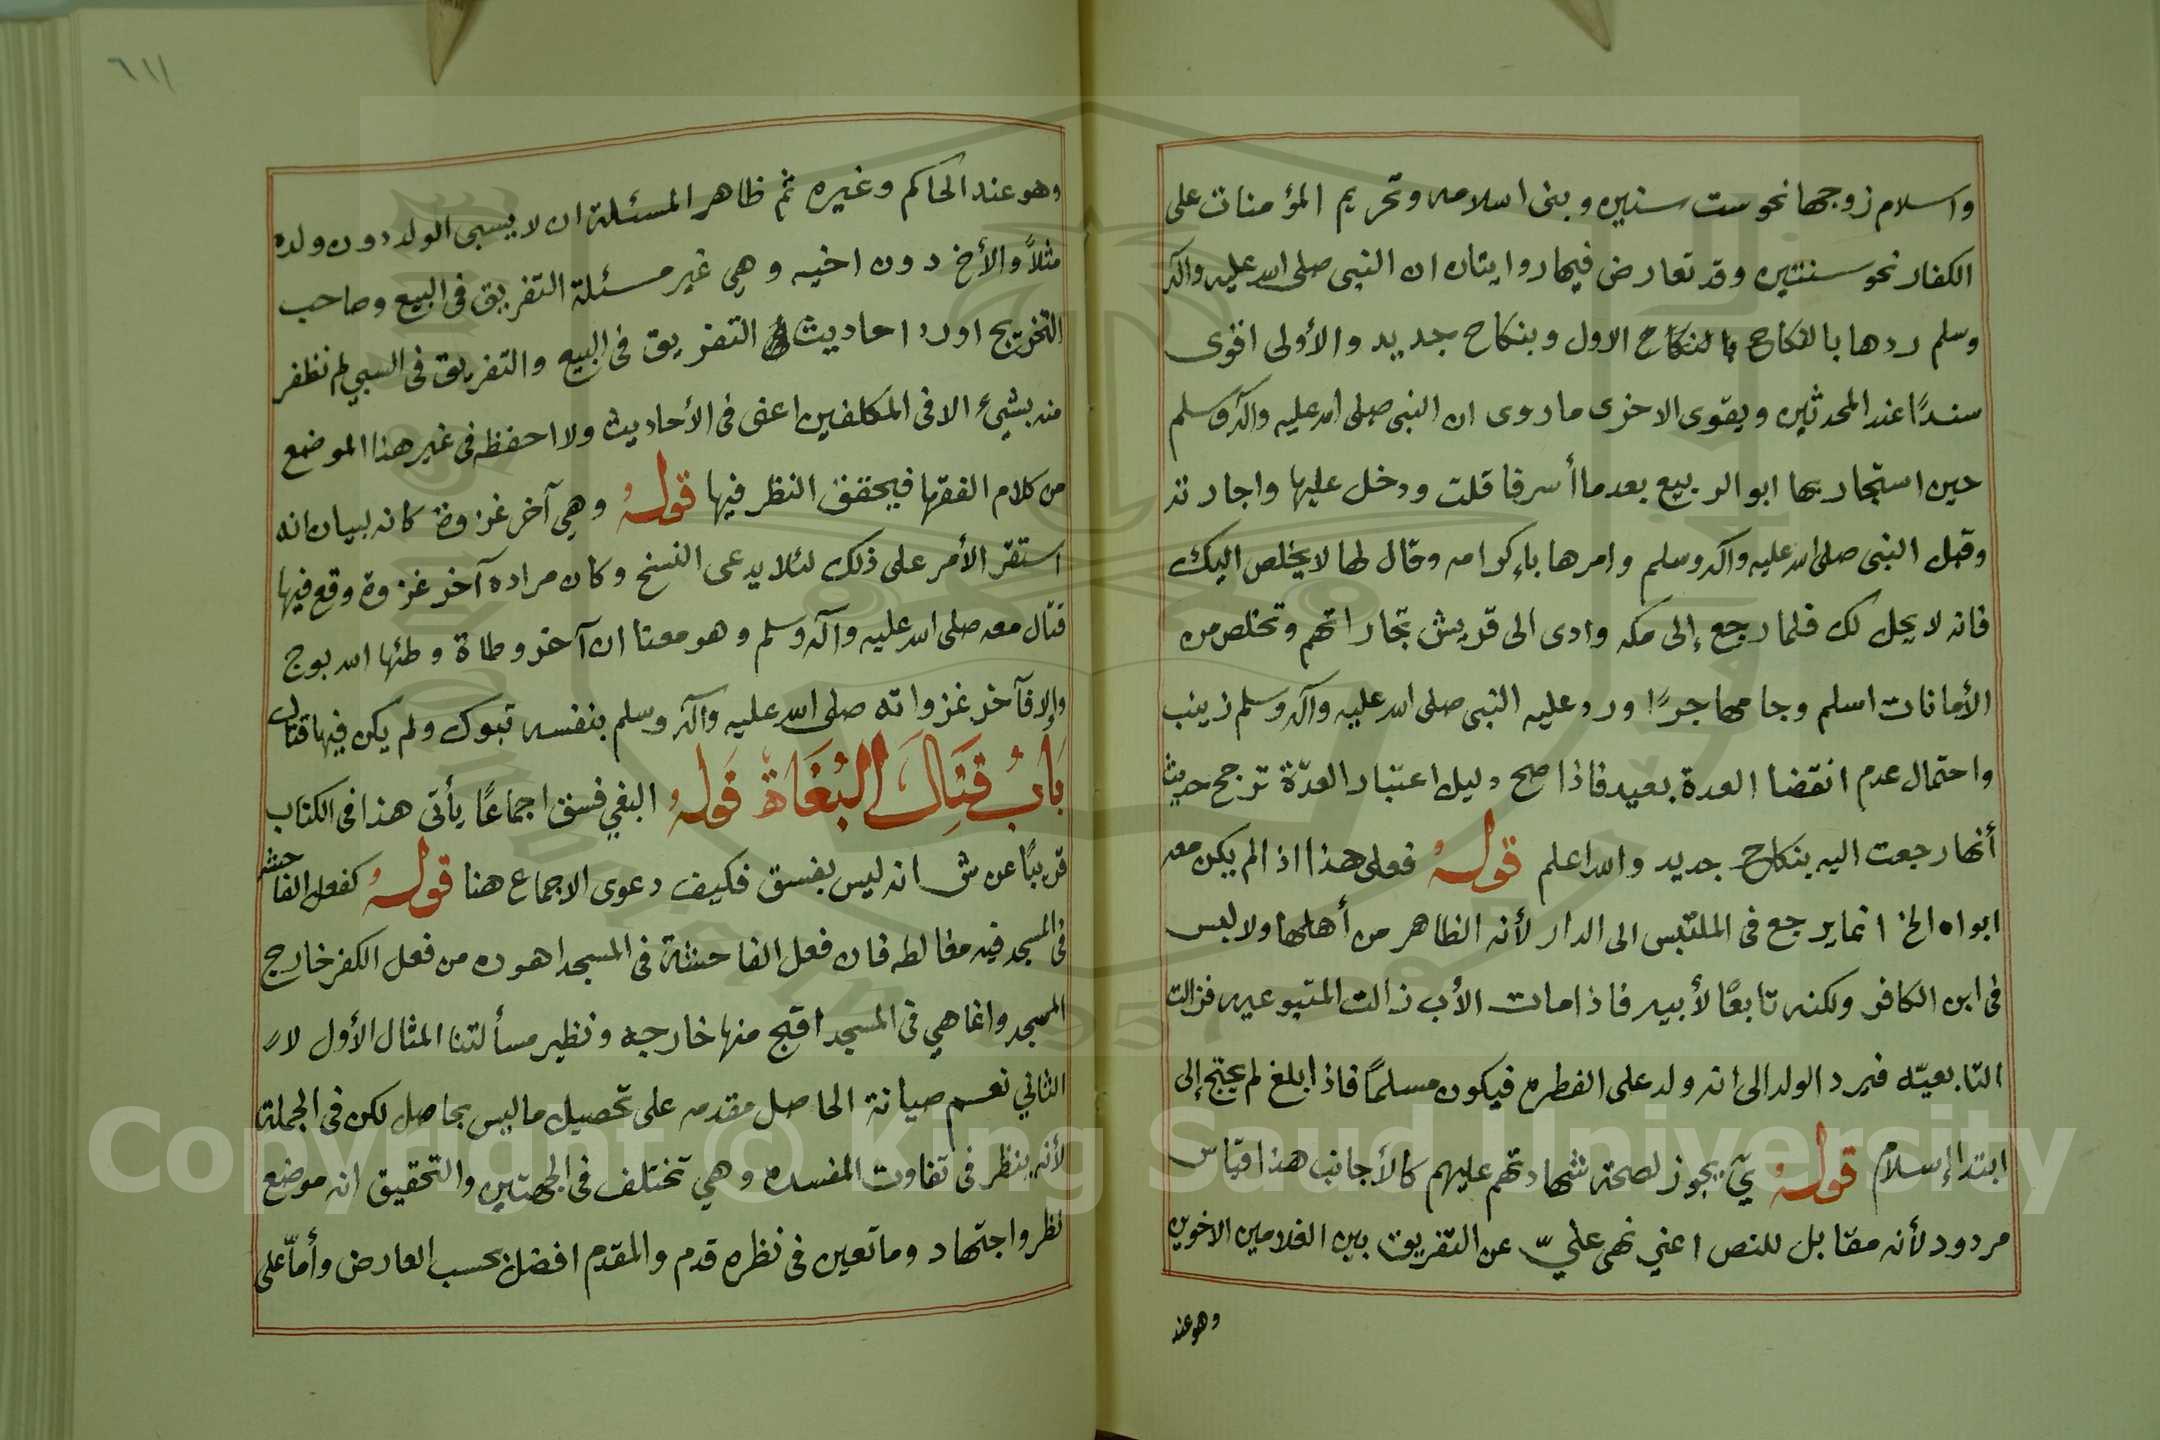 واسلام زوجها نحو ست سنين وبنى اسلامه وتحريم المؤمنات على
الكفار نحو سنتين وقد تعارض فيها روايتان ان النبى صلى الله عليه وآله
وسلم ردها بالنكاح بالنكاح الاول وبنكاح جديد والأولى اقوى
سندًا عند المحدثين ويقوى الاخرى ما روى ان النبى صلى الله عليه وآله وسلم
حين استجار بها ابو الربيع بعد ما أسر فاقلت ودخل عليها واجارته
وقبل النبى صلى الله عليه وآله وسلم وامرها بإكرامه وقال لها لا يخلص اليك
فانه لا يحل لك فلما رجع إلى مكه وادى الى قريش تجاراتهم وتخلص من
الأمانات اسلم وجا مهاجرًا ورد عليه النبى صلى الله عليه وآله وسلم زينب
واحتمال عدم انقضا العدة بعيد فاذا صح دليل اعتبار العدّة ترجح حديث
أنها رجعت اليه بنكاح جديد والله اعلم قولهُ فعلى هذا اذا لم يكن معه
ابواه الخ انما يرجع فى الملتبس الى الدار لأنه الظاهر من أهلها ولا لبس
فى ابن الكافر ولكنه تابعًا لأبيه فاذا مات الأب زالت المتبوعيه فزالت
التابعيّه فيرد الولد الى انه ولد على الفطره فيكون مسلمًا فاذا بلغ لم يحتج إلى
ابتدا إسلام قولهُ يَ يجوز لصحة شهادتهم عليهم كالأجانب هذا قياس
مردود لأنه مقابل للنص اعني نهى عليّ عن التفريق بين الغلامين الاخوين
وهو عند
٦١١
وهو عند الحاكم وغيره ثم ظاهر المسئلة ان لا يسبى الولد دون ولده
مثلاً والأخ دون اخيه وهي غير مسئلة التفريق فى البيع وصاحب
التخريج اورد احاديث التفريق فى البيع والتفريق فى السبي لم نظفر
منه بشيء الا فى المكلفين اعنى فى الأحاديث ولا احفظه فى غير هذا الموضع
من كلام الفقها فيحقق النظر فيها قولهُ وهي آخر غزوة كانه لبيان انه
استقر الأمر على ذلك لئلا يدعى النسخ وكان مراده آخر غزوة وقع فيها
قتال معه صلى الله عليه وآله وسلم وهو معنا ان آخر وطاة وطئها الله بوج
وإلا فآخر غزواته صلى الله عليه وآله وسلم بنفسه تبوك ولم يكن فيها قتال
بَابُ قِتَالَ البُغَاة قَولهُ البغي فسق اجماعًا يأتى هذا فى الكتاب
قريبًا عن ش انه ليس بفسق فكيف دعوى الاجماع هنا قولهُ كفعل الفاحشه
فى المسجد فيه مغالطه فان فعل الفاحشة فى المسجد اهون من فعل الكفر خارج
المسجد وانما هي فى المسجد اقبح منها خارجه ونظير مسألتنا المثال الأول لا
الثاني نعم صيانة الحاصل مقدمه على تحصيل ما ليس بحاصل لكن فى الجملة
لأنه ينظر فى تفاوت المفسده وهي تختلف فى الجهتين والتحقيق انه موضع
نظر واجتهاد وما تعين فى نظره قدم والمقدم افضل بحسب العارض وأمّا على